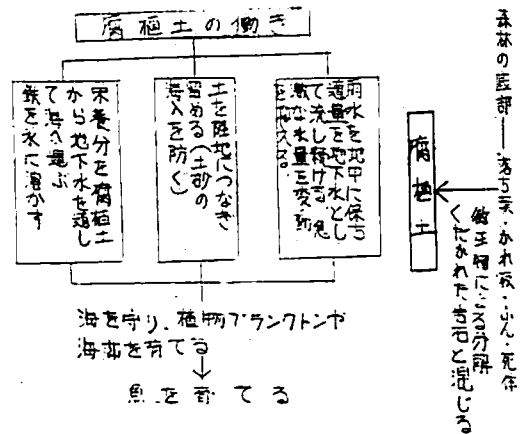 森林の底部――落ち葉・かれ枝・ふん・死体
微生物による分解
くだかれた岩石と混じる
腐植土
腐植土の働き
雨水を地中に保ち
適量を地下水とし
て流し続ける。急
激な水量を変動
を抑える。
土を陸地につなぎ
留める（土砂の
海入を防ぐ）
栄養分を腐植土
から地下水を通し
て海へ運ぶ
鉄を水に溶かす
海を守り、植物プランクトンや
海藻を育てる
魚を育てる